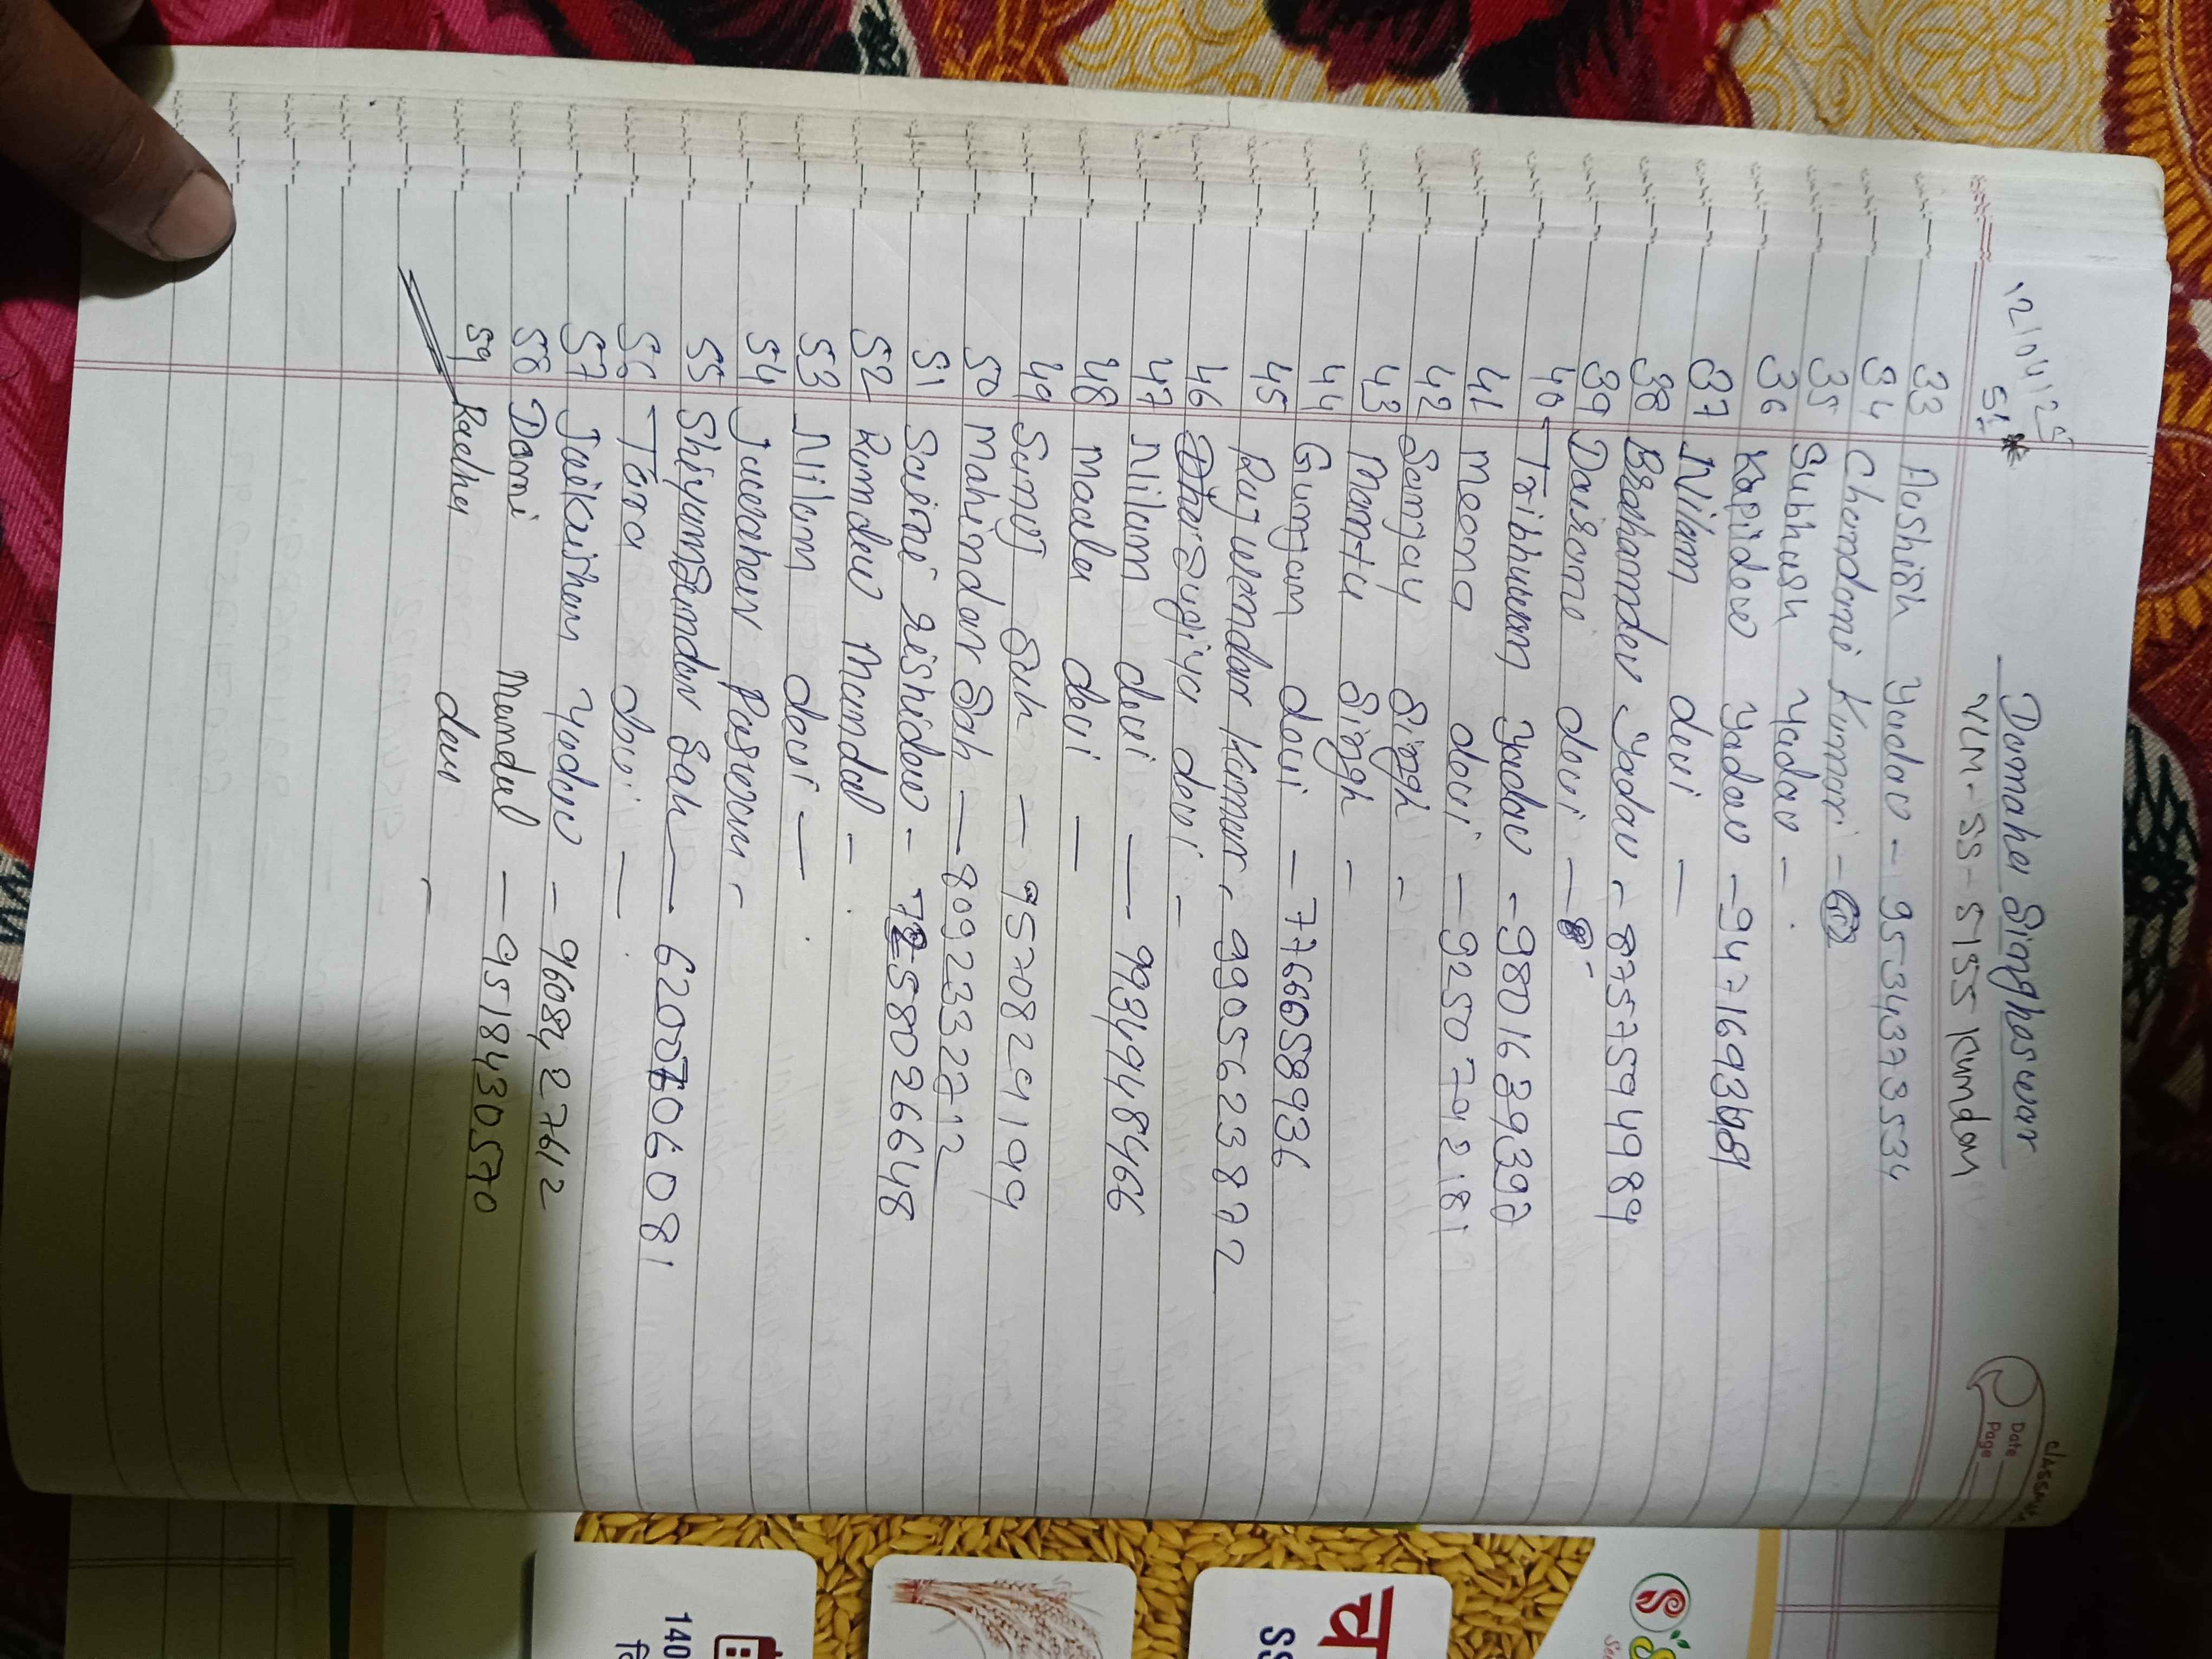 Damaha Singhaswar
12/04/25
VLM - SS - 5155 Kundan
classmate
Date
Page
33 Aashish Yadav - 9534373534
34 Chandani Kumari -
35 Subhash Yadav -
36 Kapidev Yadav - 9471693481
37 Nilam devi -
38 Brahamdev Yadav - 8757594989
39 Daisoni devi -
40 Tribhuwan Yadav - 9801639393
41 Meena devi - 9250794281
42 Sanjay Singh -
43 Mantu Singh -
44 Gunjan devi - 7766058936
45 Rajwandar Kumar - 9905623872
46 devi -
47 Nilam devi - 9934948466
48 Maala devi -
49 Sunij Sah - 9570829109
50 Mahindar Sah - 8092332712
51 rishidev - 7258026648
52 Ramdev Mandal -
53 Nilam devi -
54 Jawahar Paswan -
55 Shiyamsundar Sah - 6200706081
56 Tara devi -
57 Jaikrishan Yadav - 9608427612
58 Domi Mandal - 9518430570
59 Radha devi -
140
SS